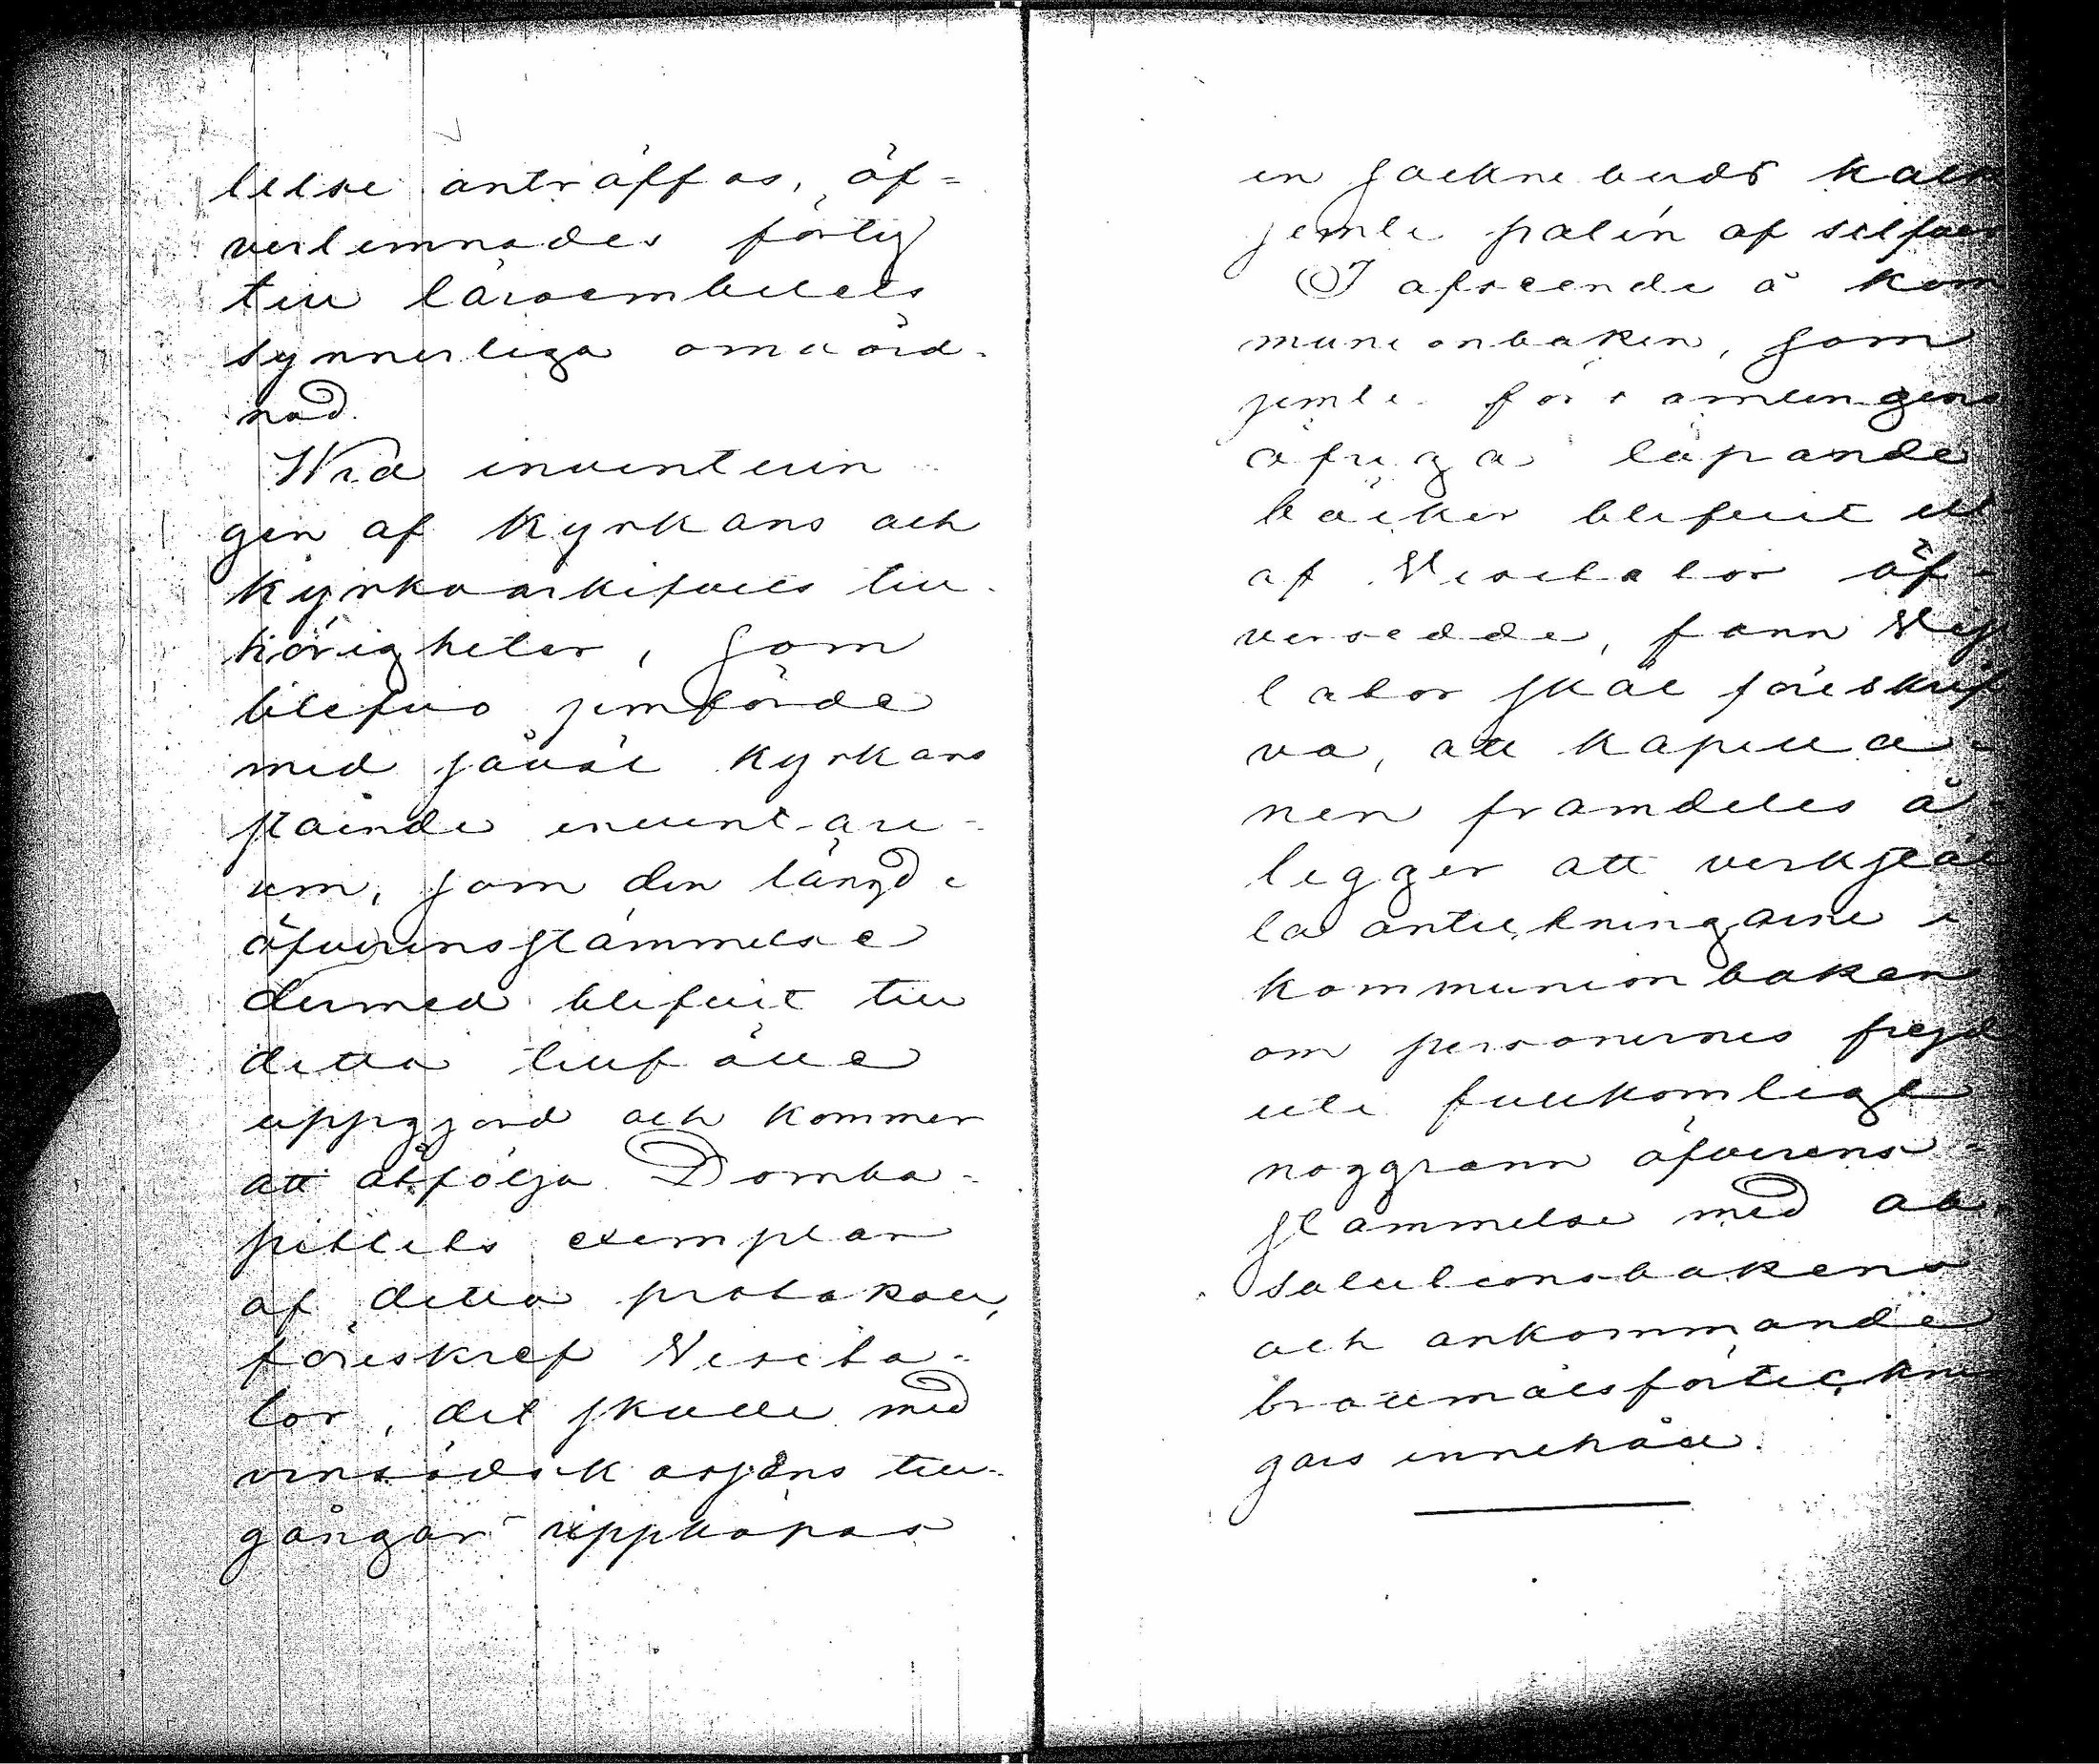 lelse anträffas, öf-
verlemnades förlig
till läroembetets
synnerliga omvård-
nad.
Wid inventerin
gen af kyrkans och
kyrkoarkifvets till-
hörigheter, som
blefvo jemförde
med såväl kyrkans
stående inventari-
um, som den längd i
öfverensstämmelse
dermed blifvit till
detta tillfälle
uppgjord och kommer
att åtfölja Domka-
pitlets exemplar
af detta protokoll,
föreskref Visita-
tor, det skulle med
vinsädskassans till-
gångar uppköpas
en socknebuds kalk
jemte patén af silfver
I afseende å kom
munionboken, som
jemte församlingens
öfriga löpande
böcker blifvit
af Visitator öf-
versedde, fann Visi
tator skäl föreskrif
va, att kapella-
nen framdeles å-
ligger att verkstäl
la anteckningarne i
kommunionboken
om personernes frejd
uti fullkomligt
noggrann öfverens-
stämmelse med ab-
solutionsbokens
och ankommande
brottmålsförtecknin
gars innehåll.